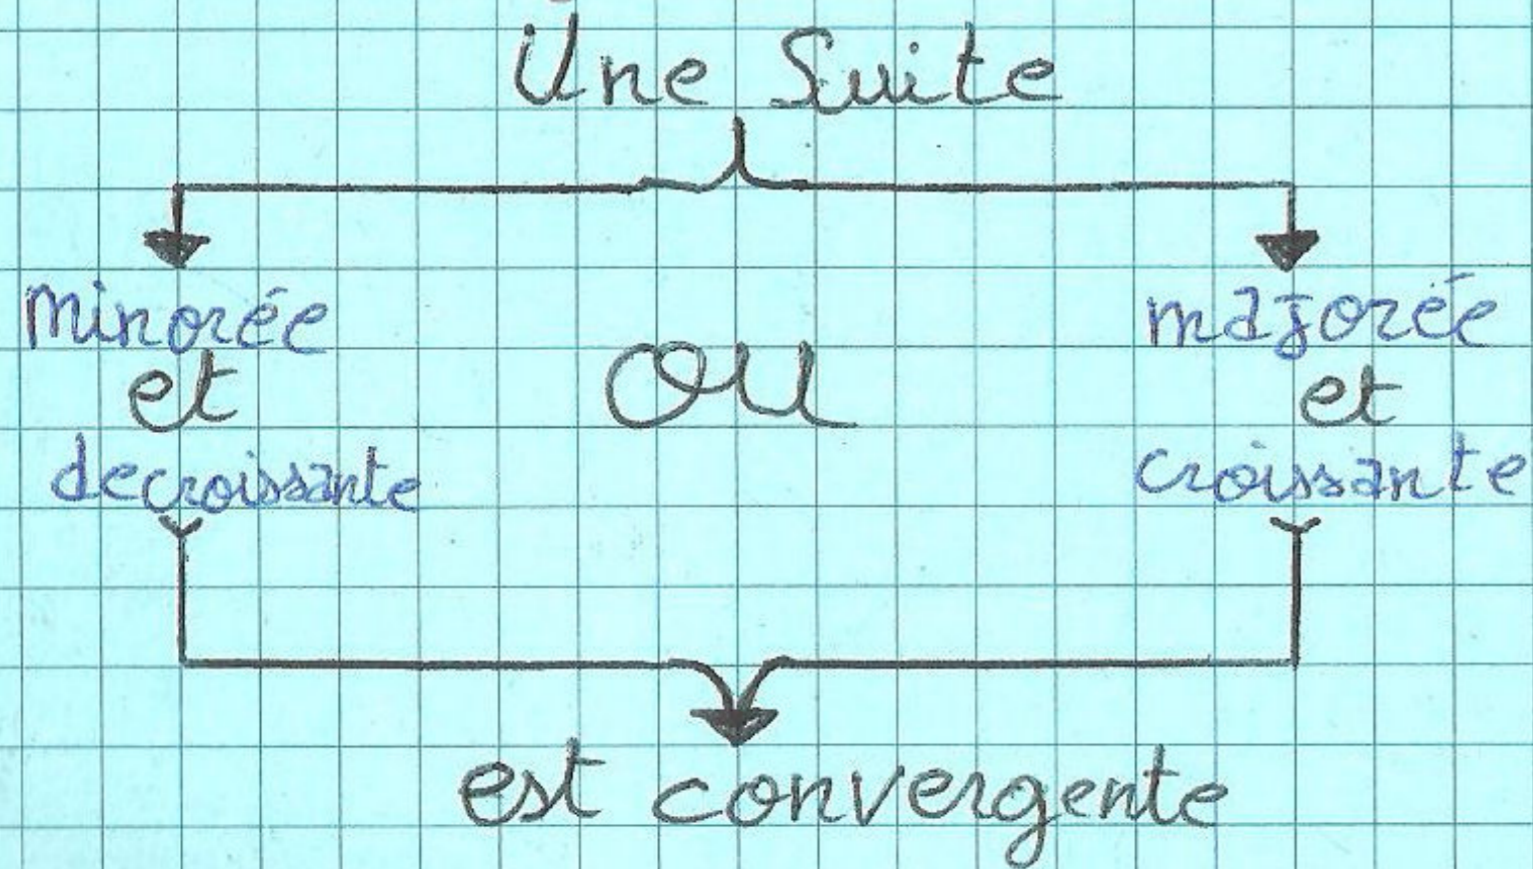 Une Suite
minorée
et
decroissante
ou
majorée
et
croissante
est convergente